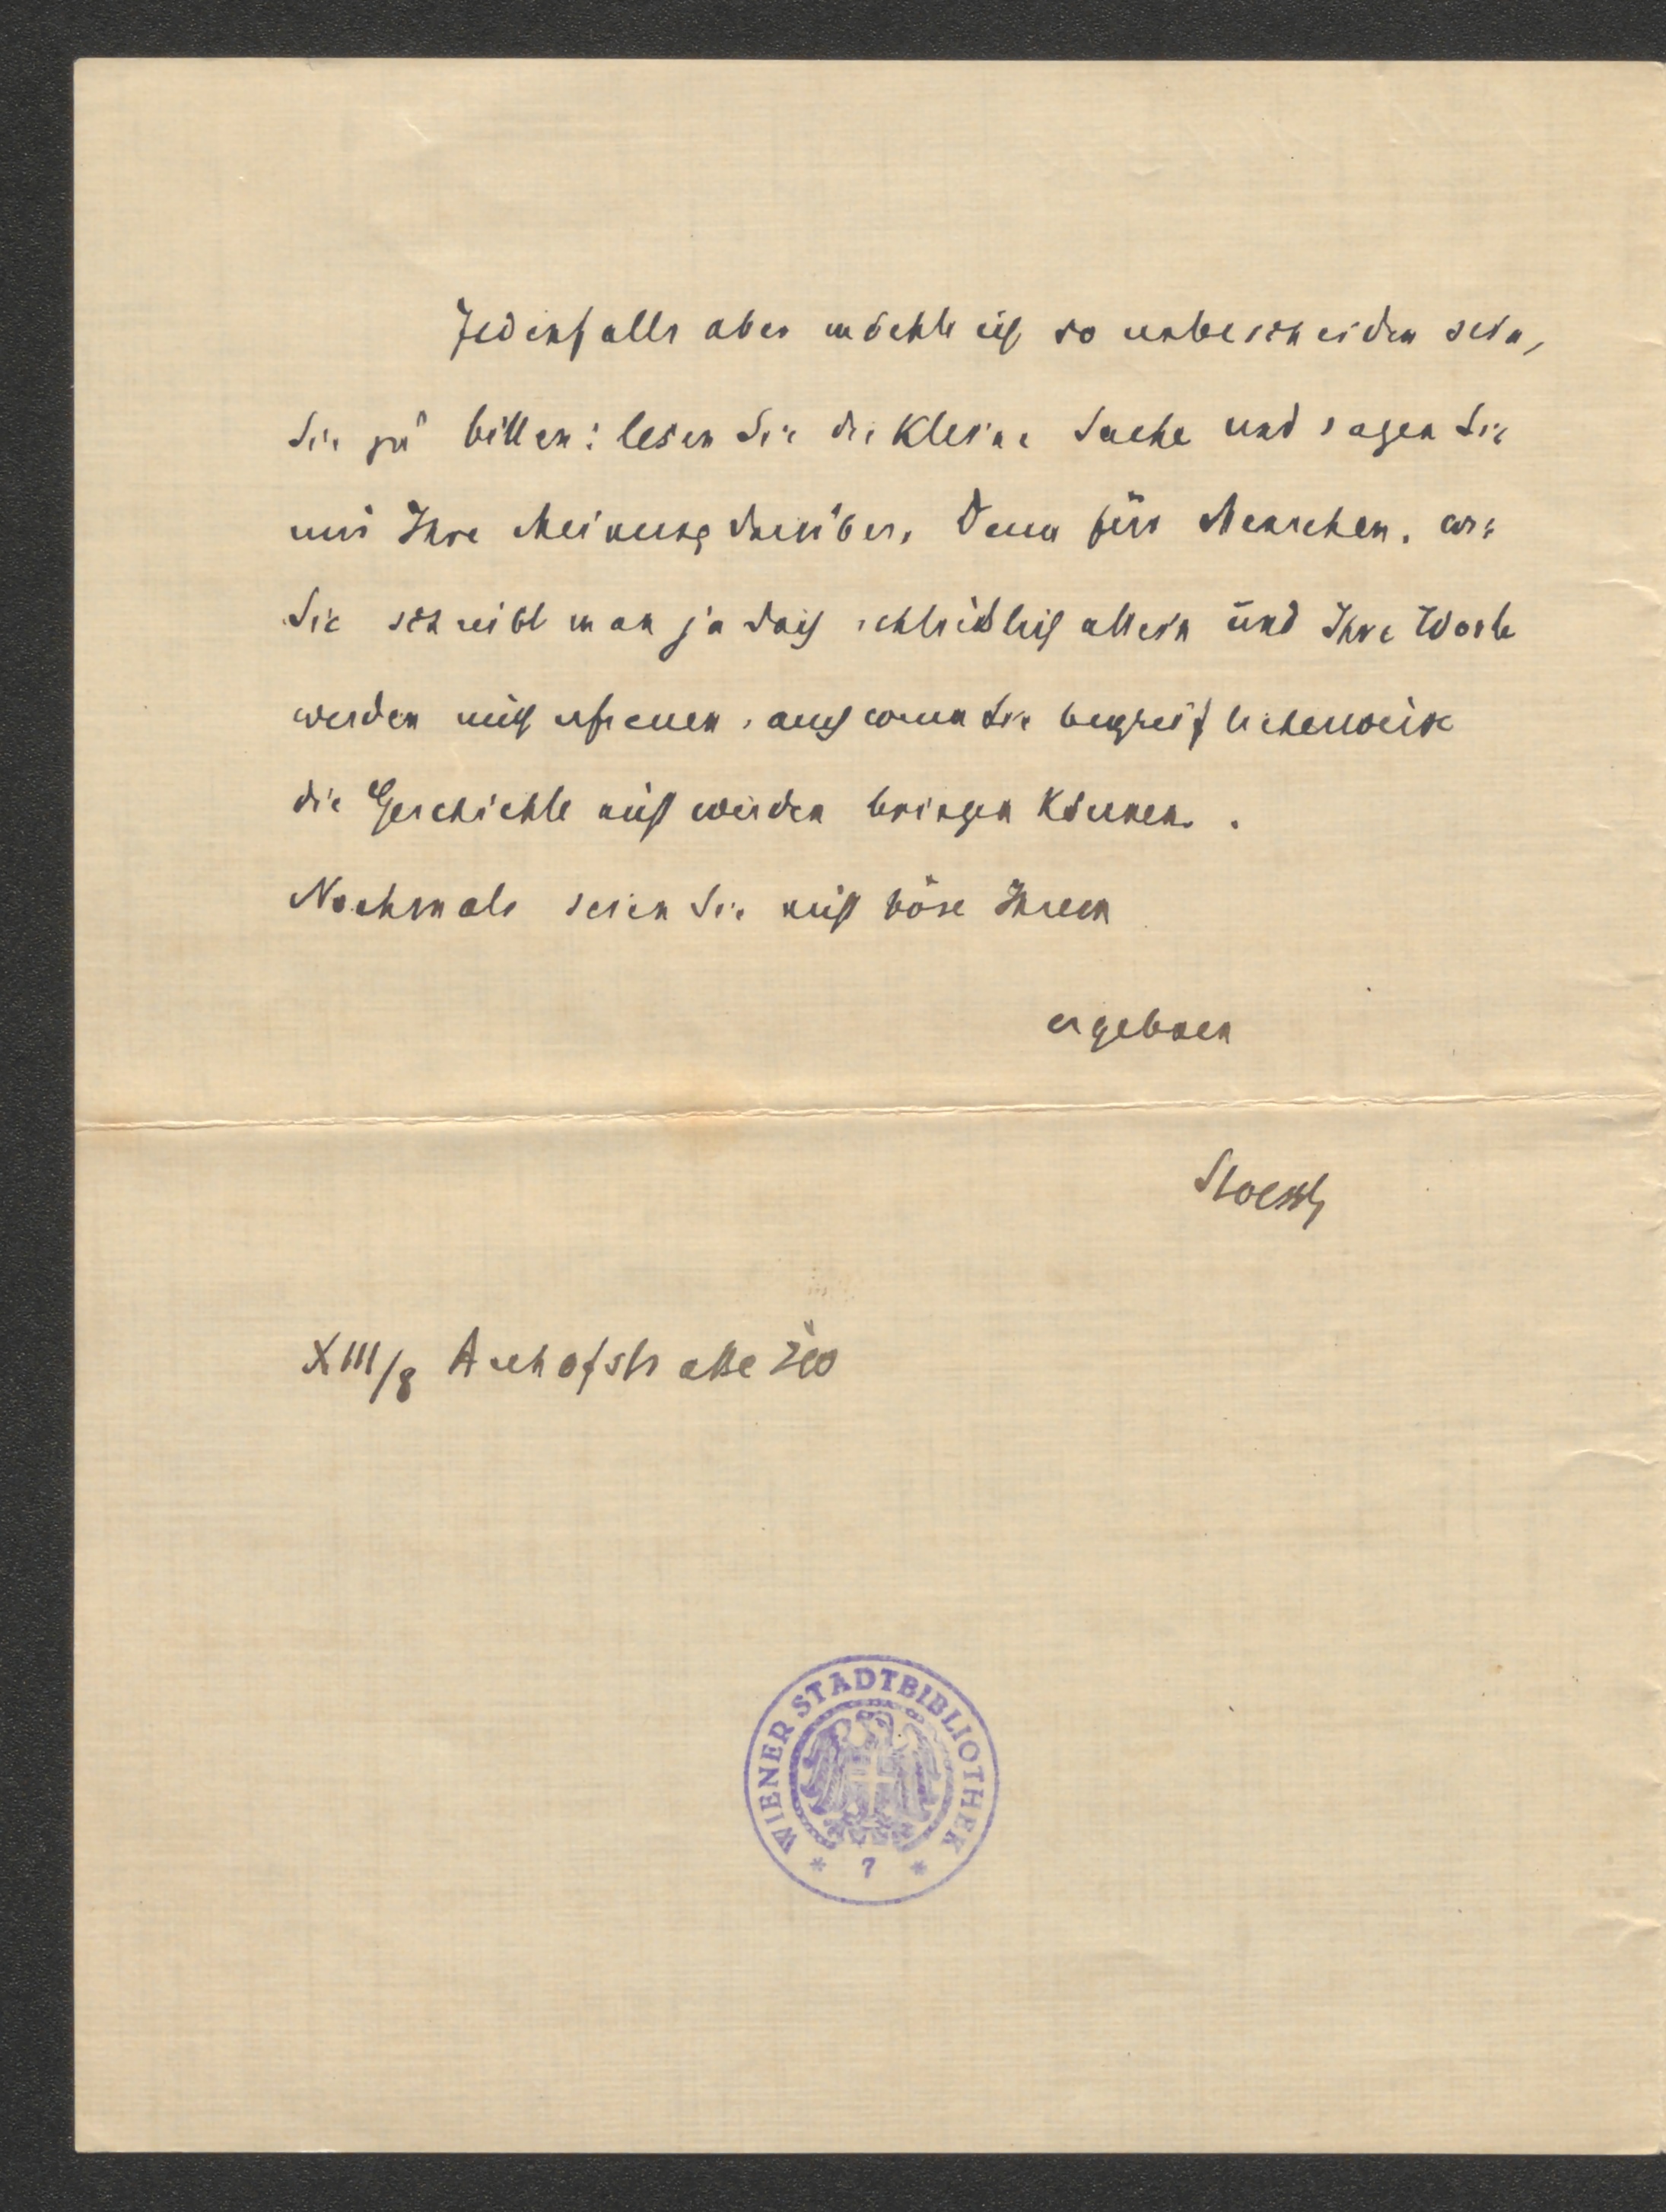 Jedenfalls aber möchte ich so unbescheiden sein,
Sie zu bitten: lesen Sie die kleine Sache und sagen Sie
mir Ihre Meinung darüber. Denn für Menschen, wie
Sie schreibt man ja doch schließlich allein und Ihre Worte
werden mich erfreuen, auch wenn Sie begreiflicherweise
die Geschichte nicht werden bringen können.
Nochmals seien Sie nicht böse Ihrem
ergebnen
Stoessl
XIII/8 Auhofstraße
WIENER STADTBIBLIOTHEK
* 7 *